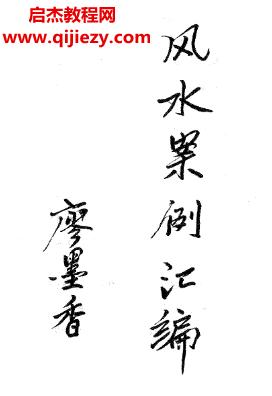 启杰教程网
www.qijiezy.com
风水案例汇编
廖墨香